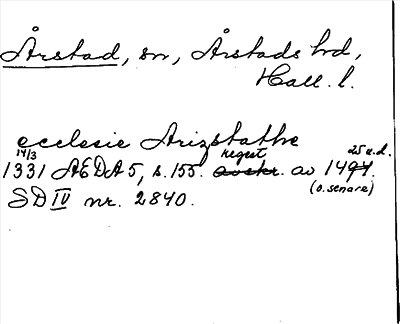 Årstad, sn, Årstads hd,
Hall. l.
ecclesie Arizstathe
14/3 regest 25 a.d.
1331 ÆDA 5, s. 155. avskr. av 1494.
(o. senare)
SD IV nr. 2840.